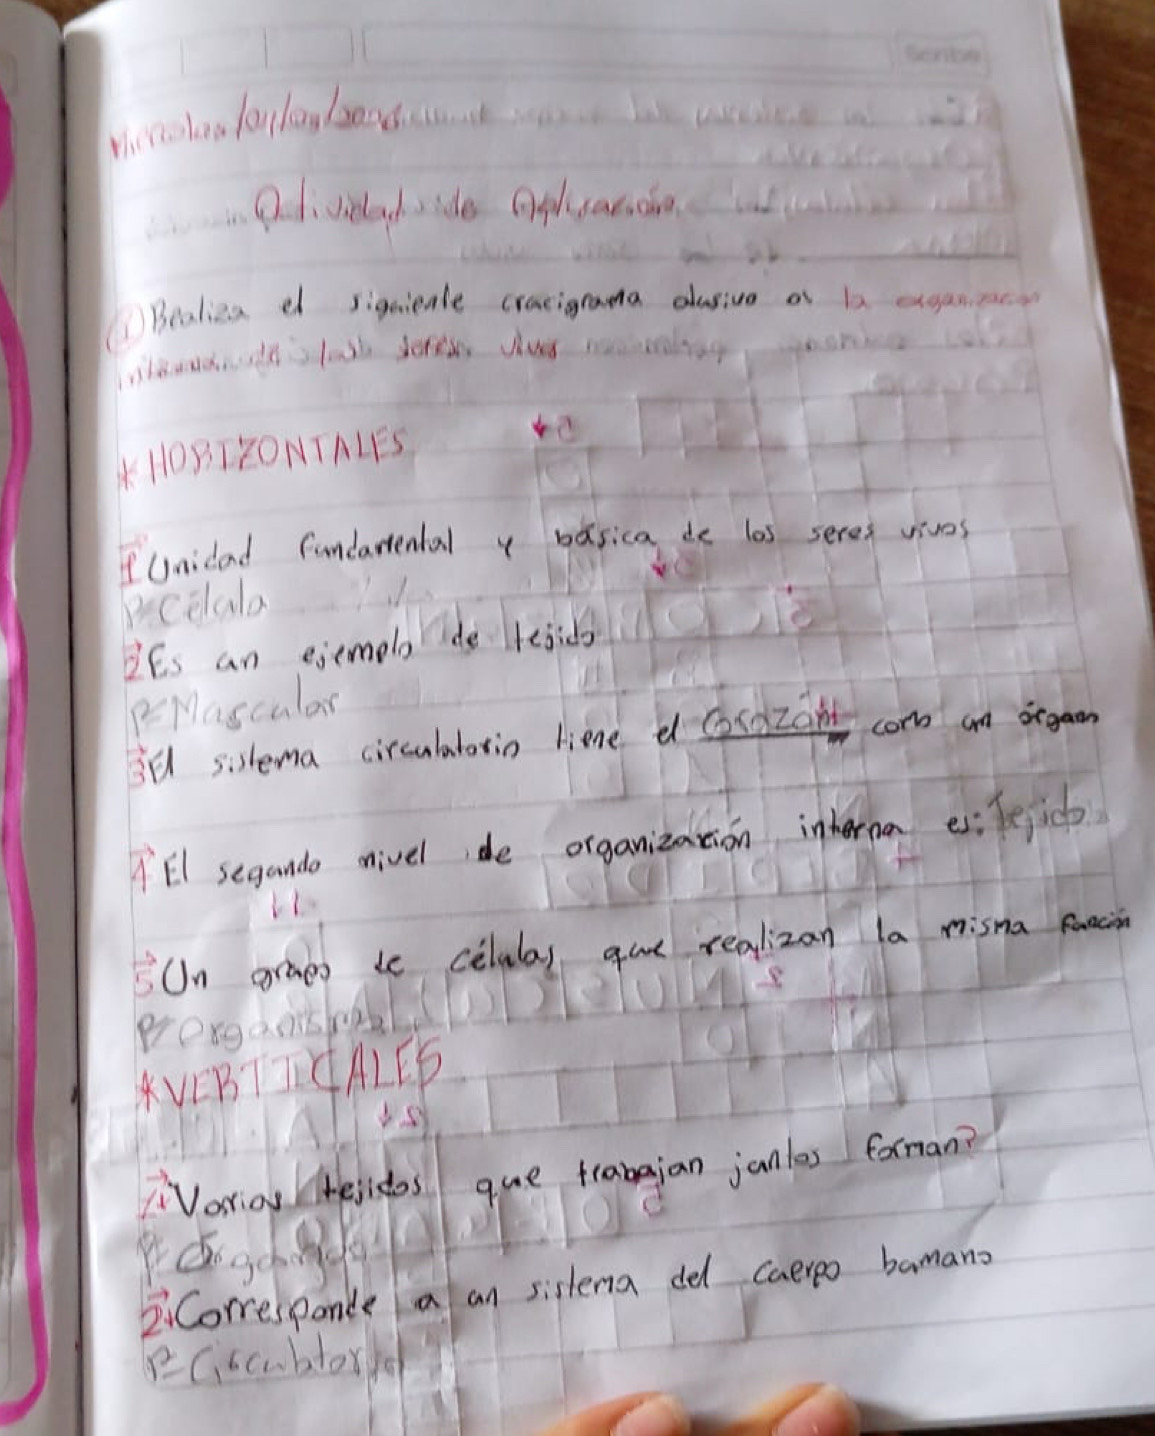 Scribe
Miercoles
Actividad de Aplicación
① Realiza el siguiente crucigrama alusivo a la organización
interna de los seres vivos
* HORIZONTALES
1 Unidad fundamental y básica de los seres vivos
R= Célula
2 Es un ejemplo de tejido
R= Muscular
3 El sistema circulatorio tiene el corazón como un órgano
4 El segundo nivel de organización interna es: Tejido
5 Un grupo de células que realizan la misma función
R= Organismo
* VERTICALES
1. Varios tejidos que trabajan juntos forman?
R= Órganos
2. Corresponde a un sistema del cuerpo humano
R= Circulatorio